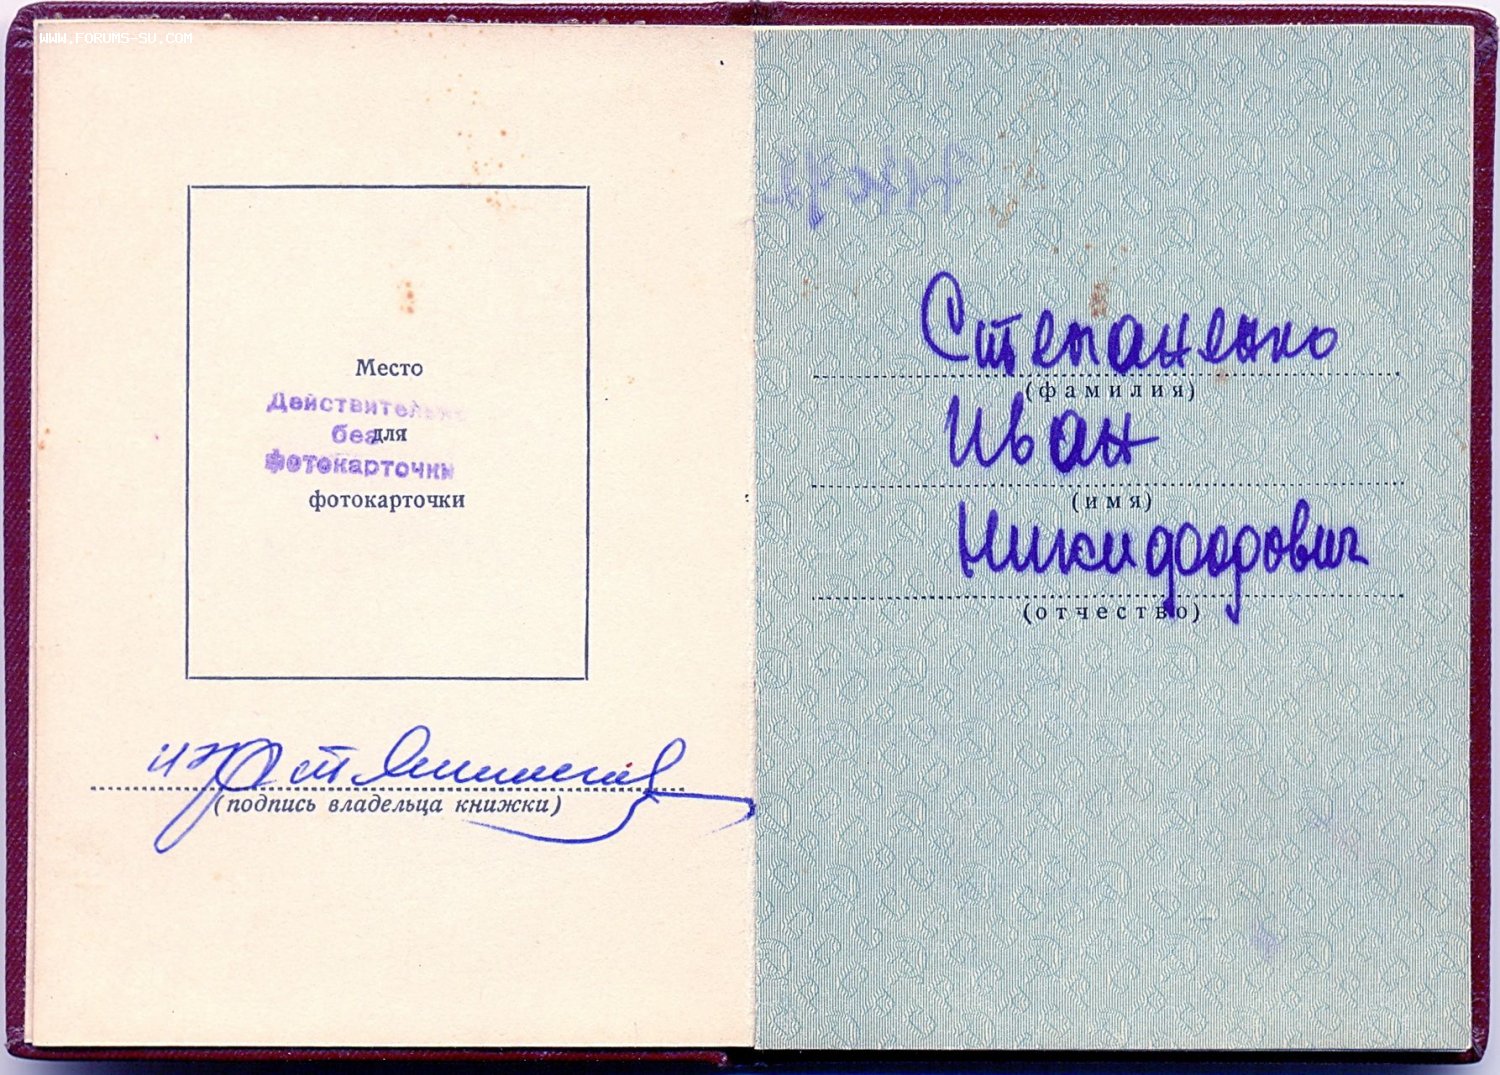 WWW.FORUMS-SU.COM
Место
Действительно
без
для
фотокарточки
фотокарточки
(подпись владельца книжки)
Степаненко
(фамилия)
Иван
(имя)
Никифорович
(отчество)